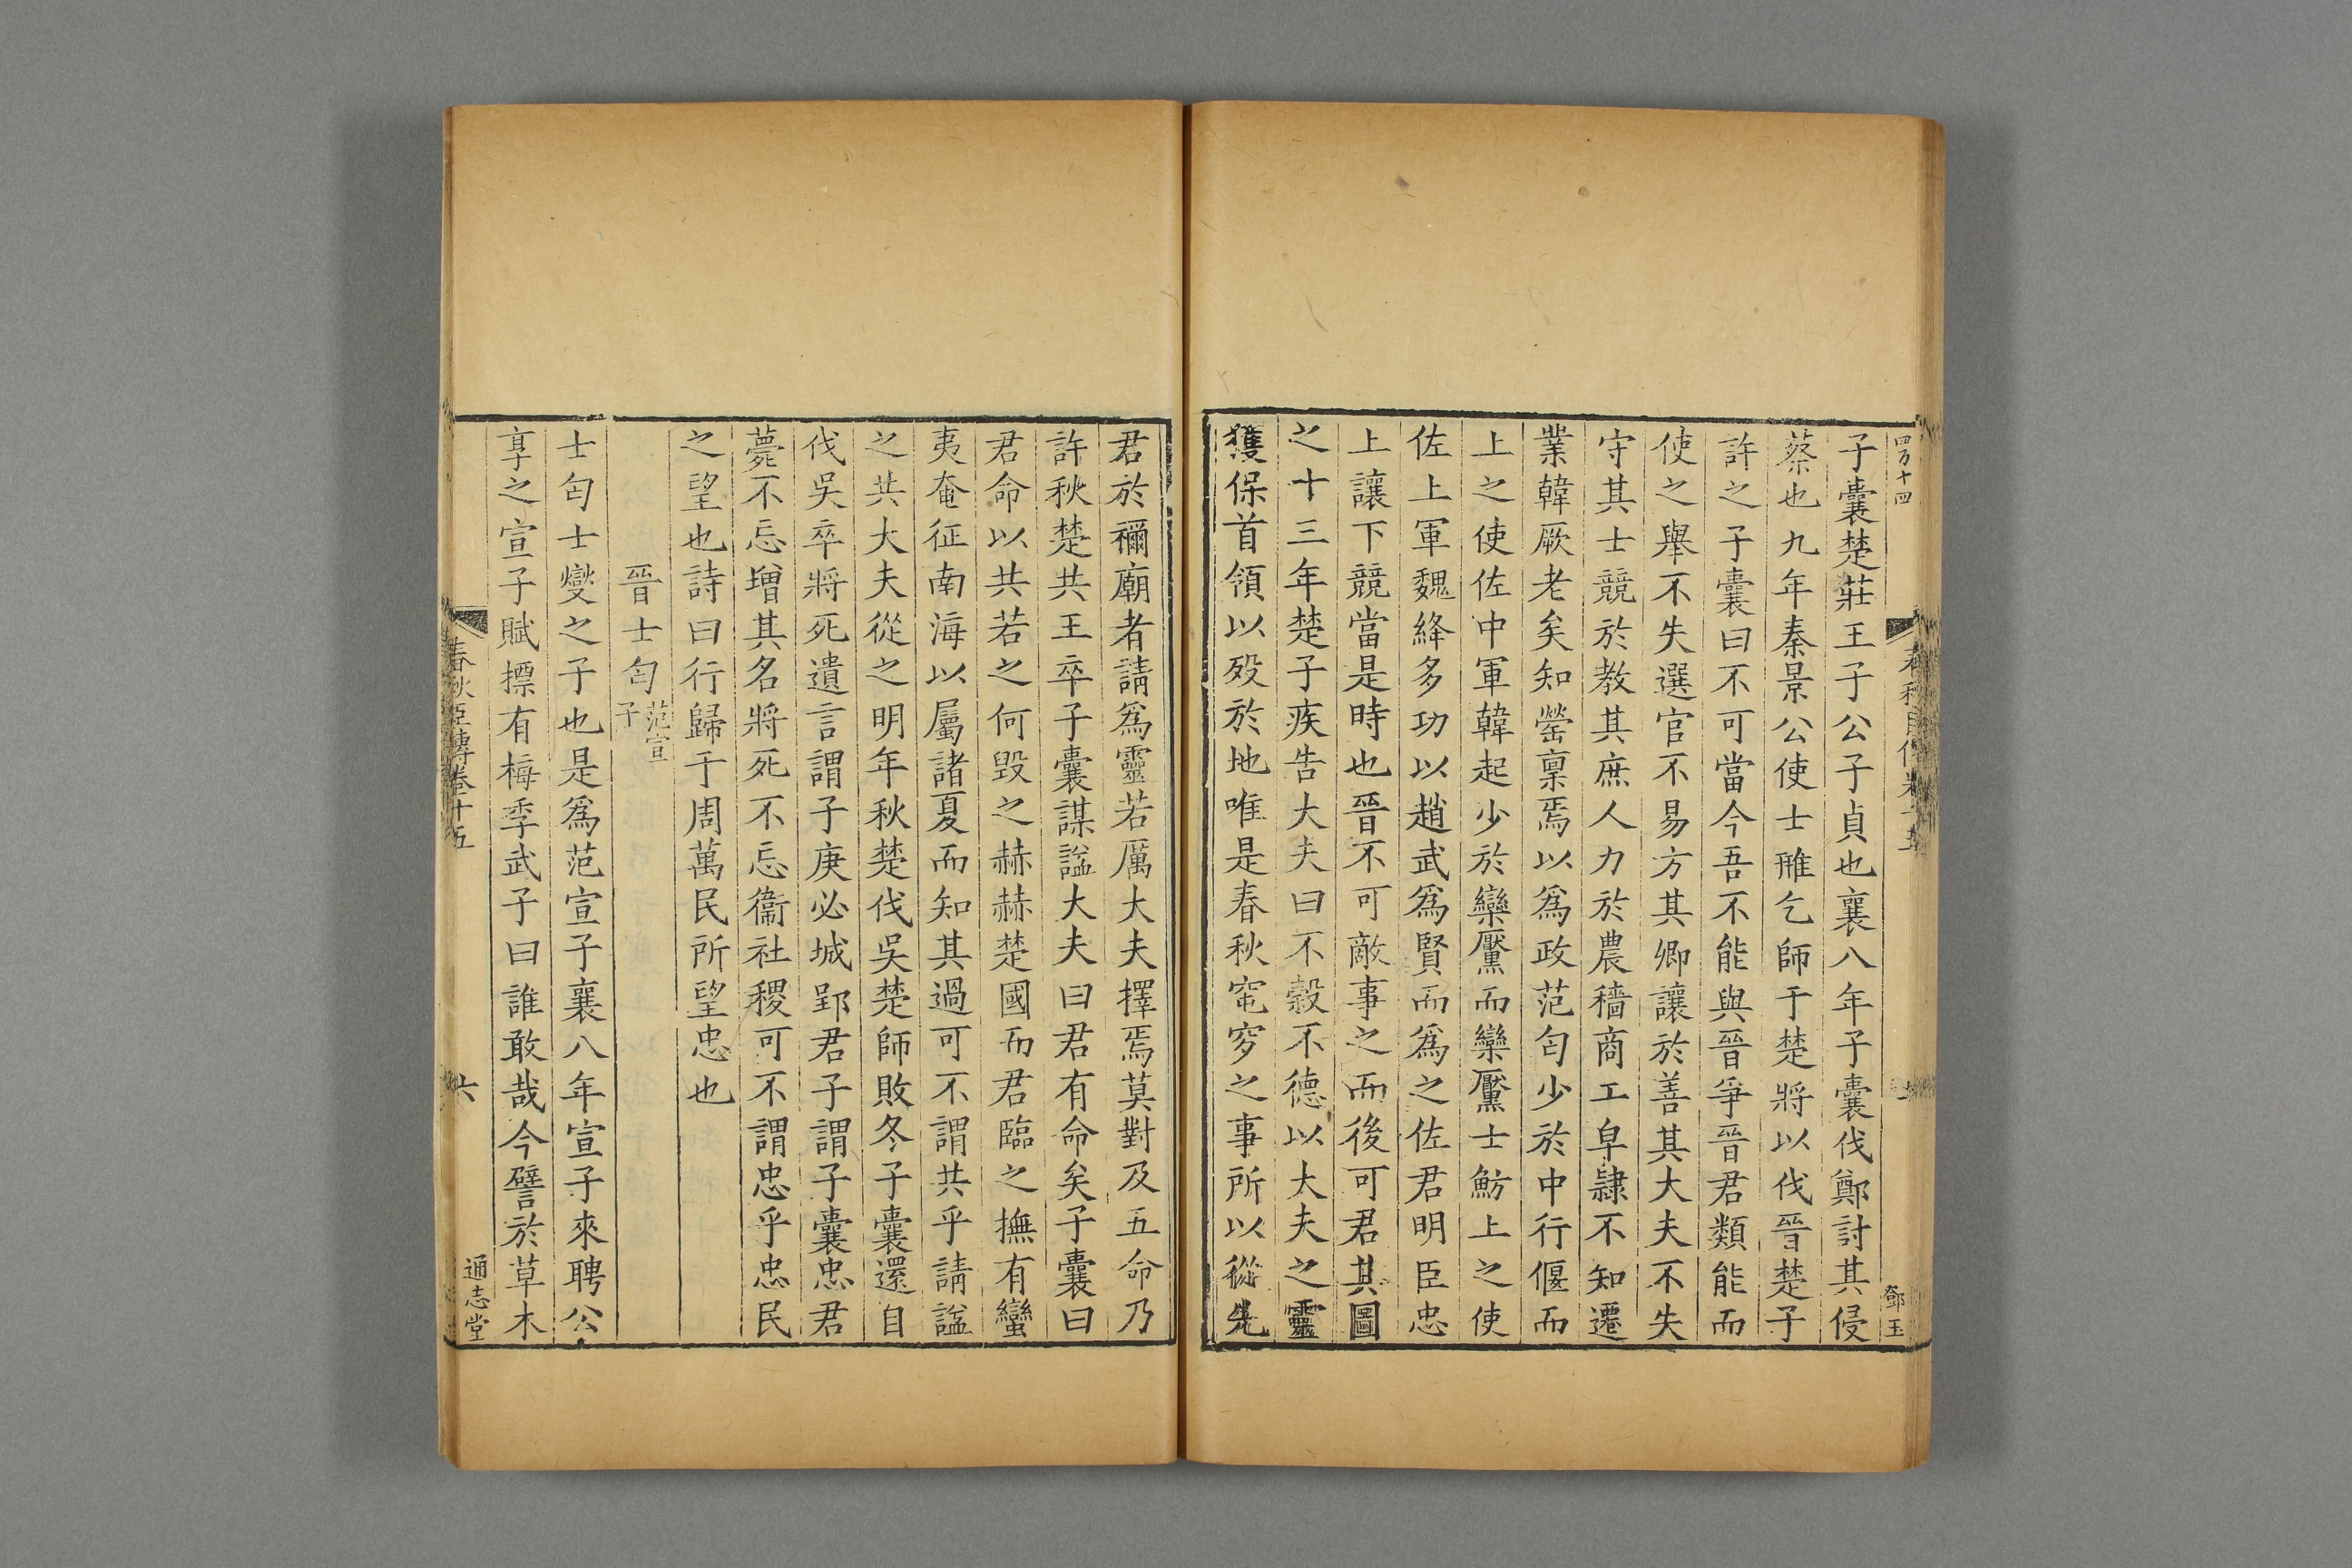 四万十四
鄧玉
子囊楚莊王子公子貞也襄八年子囊伐鄭討其侵
蔡也九年秦景公使士雃乞師于楚將以伐晉楚子
許之子囊曰不可當今吾不能與晉爭晉君類能而
使之舉不失選官不易方其卿讓於善其大夫不失
守其士競於教其庶人力於農穡商工皁隷不知遷
業韓厥老矣知罃稟焉以爲政范匄少於中行偃而
上之使佐中軍韓起少於欒黶而欒黶士魴上之使
佐上軍魏絳多功以趙武爲賢而爲之佐君明臣忠
上讓下競當是時也晉不可敵事之而後可君其圖
之十三年楚子疾告大夫曰不穀不德以大夫之靈
獲保首領以歿於地唯是春秋窀穸之事所以從先
君於禰廟者請爲靈若厲大夫擇焉莫對及五命乃
許秋楚共王卒子囊謀諡大夫曰君有命矣子囊曰
君命以共若之何毀之赫赫楚國而君臨之撫有蠻
夷奄征南海以屬諸夏而知其過可不謂共乎請諡
之共大夫從之明年秋楚伐吳楚師敗冬子囊還自
伐吳卒將死遺言謂子庚必城郢君子謂子囊忠君
薨不忘增其名將死不忘衞社稷可不謂忠乎忠民
之望也詩曰行歸于周萬民所望忠也
晉士匄范宣子
士匄士燮之子也是爲范宣子襄八年宣子來聘公
享之宣子賦摽有梅季武子曰誰敢哉今譬於草木
春秋臣傳卷十五
六
通志堂